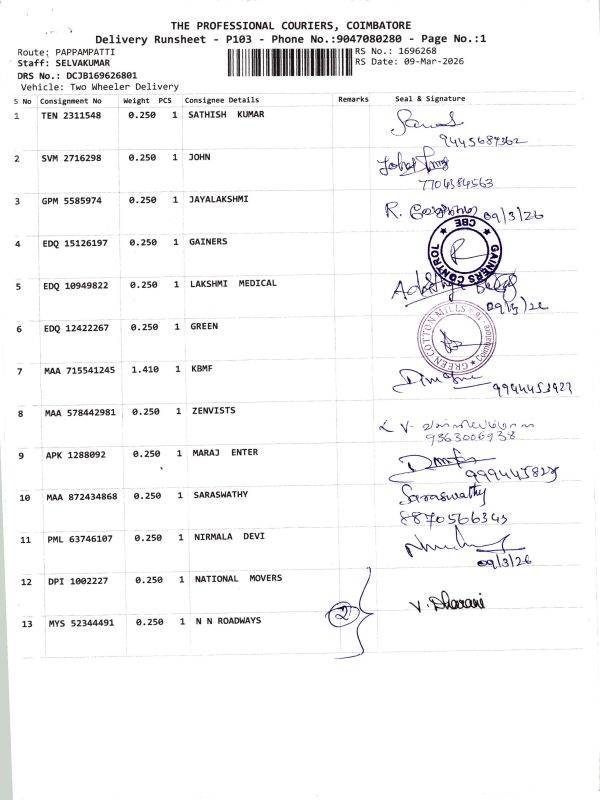 THE PROFESSIONAL COURIERS, COIMBATORE
Delivery Runsheet - P103 - Phone No.:9047080280 - Page No.:1
Route: PAPPAMPATTI
RS No.: 1696268
Staff: SELVAKUMAR
RS Date: 09-Mar-2026
DRS No.: DCJB169626801
Vehicle: Two Wheeler Delivery
S No Consignment No Weight PCS Consignee Details Remarks Seal & Signature
1 TEN 2311548 0.250 1 SATHISH KUMAR
2 SVM 2716298 0.250 1 JOHN
7704384563
3 GPM 5585974 0.250 1 JAYALAKSHMI
R. 09/3/26
4 EDQ 15126197 0.250 1 GAINERS
GAINERS CONTROL CBE
5 EDQ 10949822 0.250 1 LAKSHMI MEDICAL
6 EDQ 12422267 0.250 1 GREEN
GREEN COTTON MILLS Coimbatore
7 MAA 715541245 1.410 1 KBMF
8 MAA 578442981 0.250 1 ZENVISTS
9363006938
9 APK 1288092 0.250 1 MARAJ ENTER
10 MAA 872434868 0.250 1 SARASWATHY Saraswathy
8870566343
11 PML 63746107 0.250 1 NIRMALA DEVI
09/3/26
12 DPI 1002227 0.250 1 NATIONAL MOVERS
2 V. Dharani
13 MYS 52344491 0.250 1 N N ROADWAYS